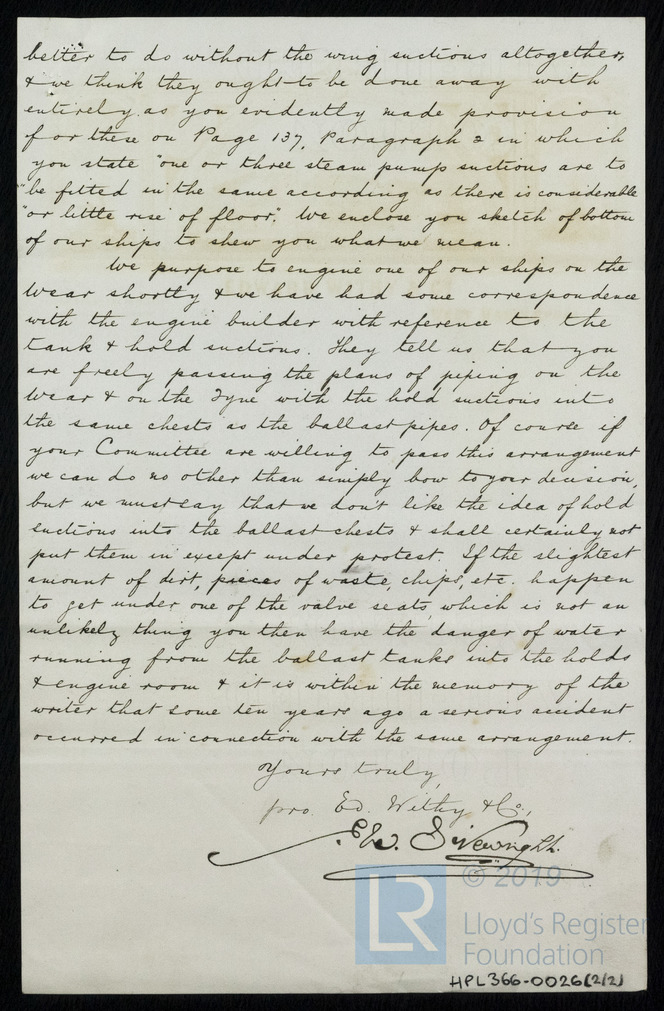 better to do without the wing suctions altogether,
& we think they ought to be done away with
entirely as you evidently made provision
for these on Page 137, Paragraph 2 in which
you state "one or three steam pump suctions are to
"be fitted in the same according as there is considerable
"or little rise of floor". We enclose you sketch of bottom
of our ships to shew you what we mean.
We purpose to engine one of our ships on the
Wear shortly & we have had some correspondence
with the engine builder with reference to the
tank & hold suctions. They tell us that you
are freely passing the plans of piping on the
Wear & on the Tyne with the hold suctions into
the same chests as the ballast pipes. Of course if
your Committee are willing to pass this arrangement
we can do no other than simply bow to your decision,
but we must say that we don't like the idea of hold
suctions into the ballast chests & shall certainly not
put them in except under protest. If the slightest
amount of dirt, pieces of waste, chips, etc. happen
to get under one of the valve seats, which is not an
unlikely thing you then have the danger of water
running from the ballast tanks into the holds
& engine room & it is within the memory of the
writer that some ten years ago a serious accident
occurred in connection with the same arrangement.
Yours truly,
pro. Ed. Withy & Co.,
R. W. Sivewright.
LR
© 2019
Lloyd's Register
Foundation
HPL366-0026(2/2)